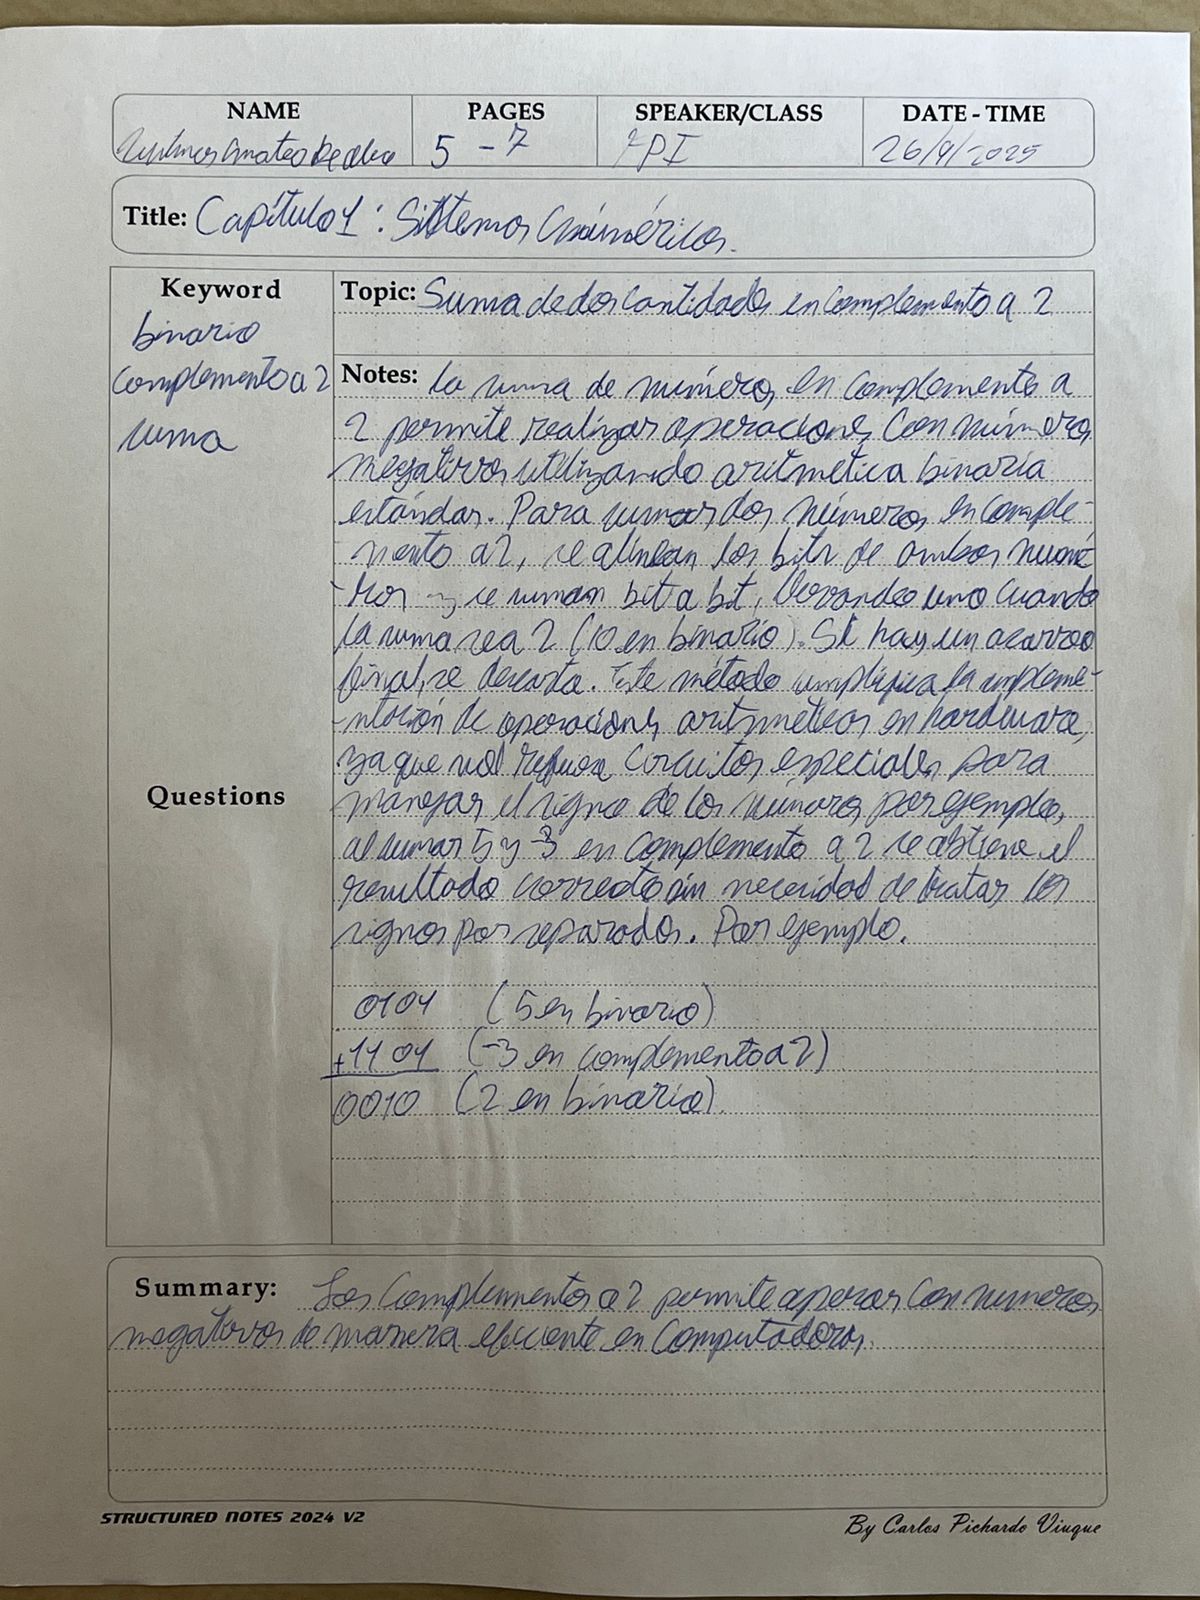 NAME PAGES SPEAKER/CLASS DATE - TIME
5 - 7 26/9/2025
Title: Capítulo 1: Sistemas numéricos.
Keyword
binario
complemento a 2
suma
Questions
Topic: Suma de dos cantidades en complemento a 2
Notes: La suma de números en complemento a
2 permite realizar operaciones con números
negativos utilizando aritmética binaria
estándar. Para sumar dos números en comple-
mento a 2, se alinean los bits de ambos núme
-ros y se suman bit a bit, llevando uno cuando
la suma sea 2 (10 en binario). Si hay un acarreo
final, se descarta. Este método simplifica la impleme-
-ntación de operaciones aritméticas en hardware,
ya que no circuitos especiales para
manejar el signo de los números por ejemplo,
al sumar 5 y -3 en complemento a 2 se obtiene el
resultado correcto sin necesidad de tratar los
signos por separados. Por ejemplo.
0101 (5 en binario)
+1101 (-3 en complemento a 2)
0010 (2 en binario).
Summary: Los complementos a 2 permite operar con números
negativos de manera eficiente en computadoras.
STRUCTURED NOTES 2024 V2
By Carlos Pichardo Viuque